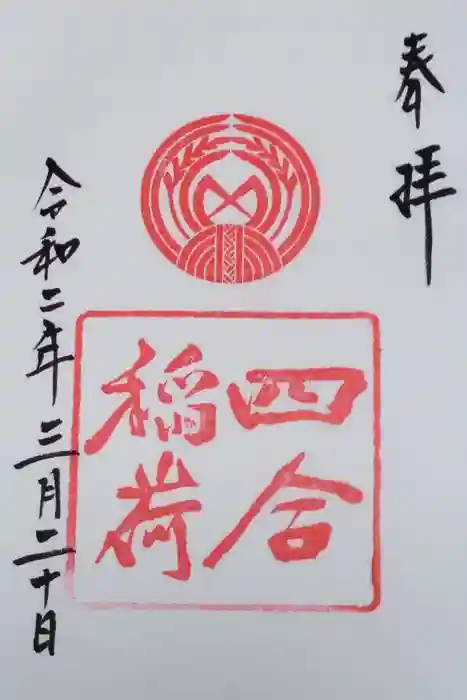 奉拝
四合
稲荷
令和二年三月二十日